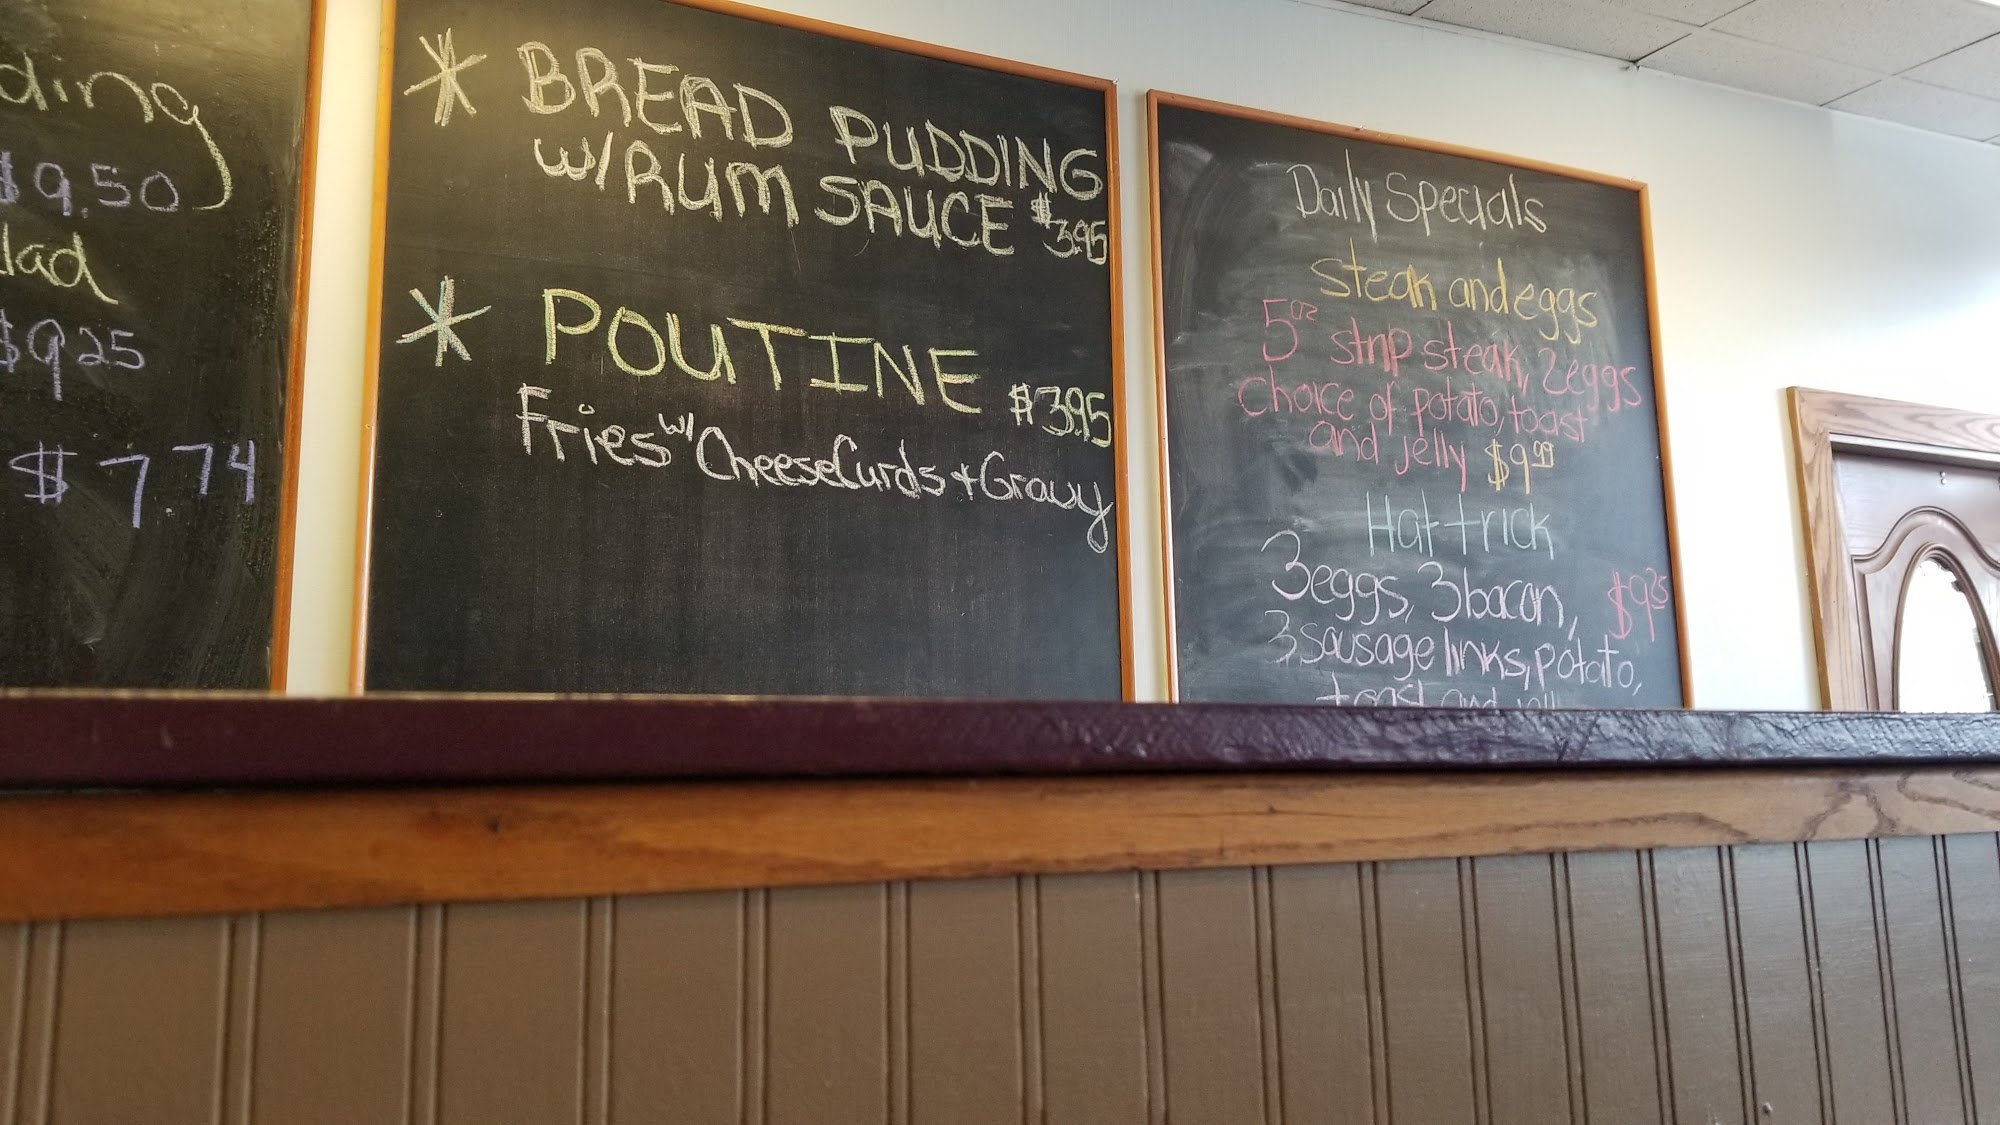 ding
$9.50
lad
$9 25
$7.74
* BREAD PUDDING
w/RUM SAUCE $3.95
* POUTINE $3.95
Fries w/ Cheese Curds + Gravy
Daily Specials
Steak and eggs
5oz strip steak, 2 eggs
choice of potato, toast
and jelly $9 99
Hat trick
3 eggs, 3 bacon, $9 25
3 sausage links, potato,
toast and